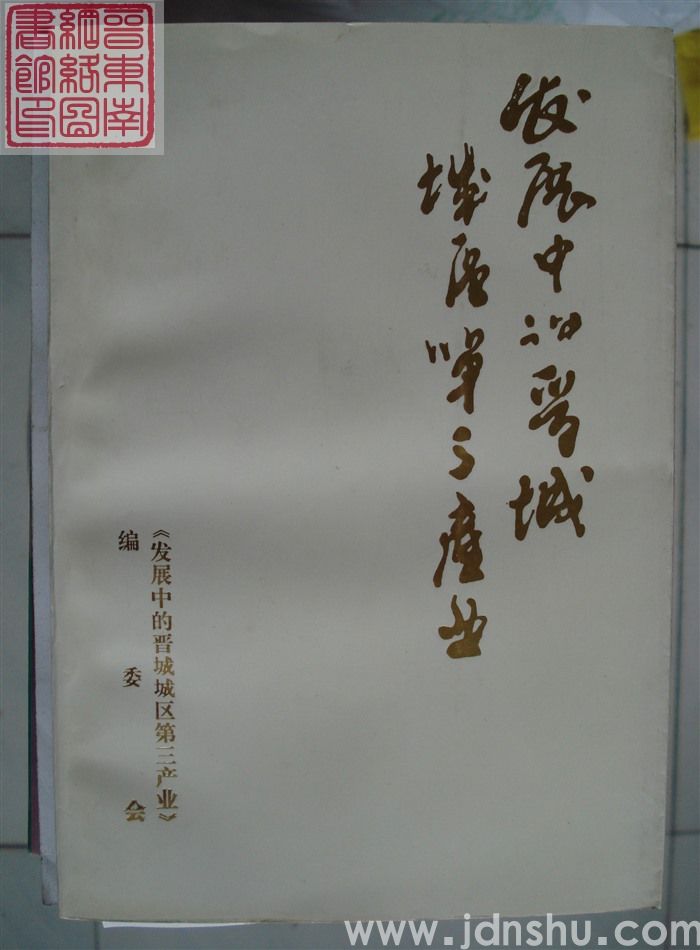 晋东南
網絡圖
書館印
发展中的晋城
城区第三產业
《发展中的晋城城区第三产业》
编委会
www.jdnshu.com